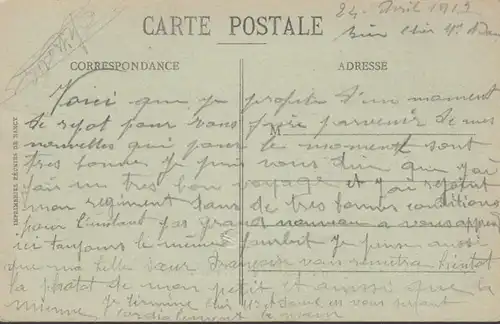 24 Avril 1919
CARTE POSTALE
bien cher Mr
CORRESPONDANCE
ADRESSE
Voici que je profite d'un moment
de repos pour vous faire parvenir de mes
nouvelles qui pour le moment sont
très bonnes Je puis vous dire que j'ai
fait un très bon voyage et j'ai rejoint
mon regiment dans de très bonnes conditions
pour l'instant pas grand nouveau a vous apprendre
ici toujours le même Je pense aussi
que ma belle soeur Françoise vous remettra bientot
la photot de mon petit et ainsi que la
mienne Je termine cher Mr et Dame en vous serrant
cordialement la main
IMPRIMERIES RÉUNIES DE NANCY